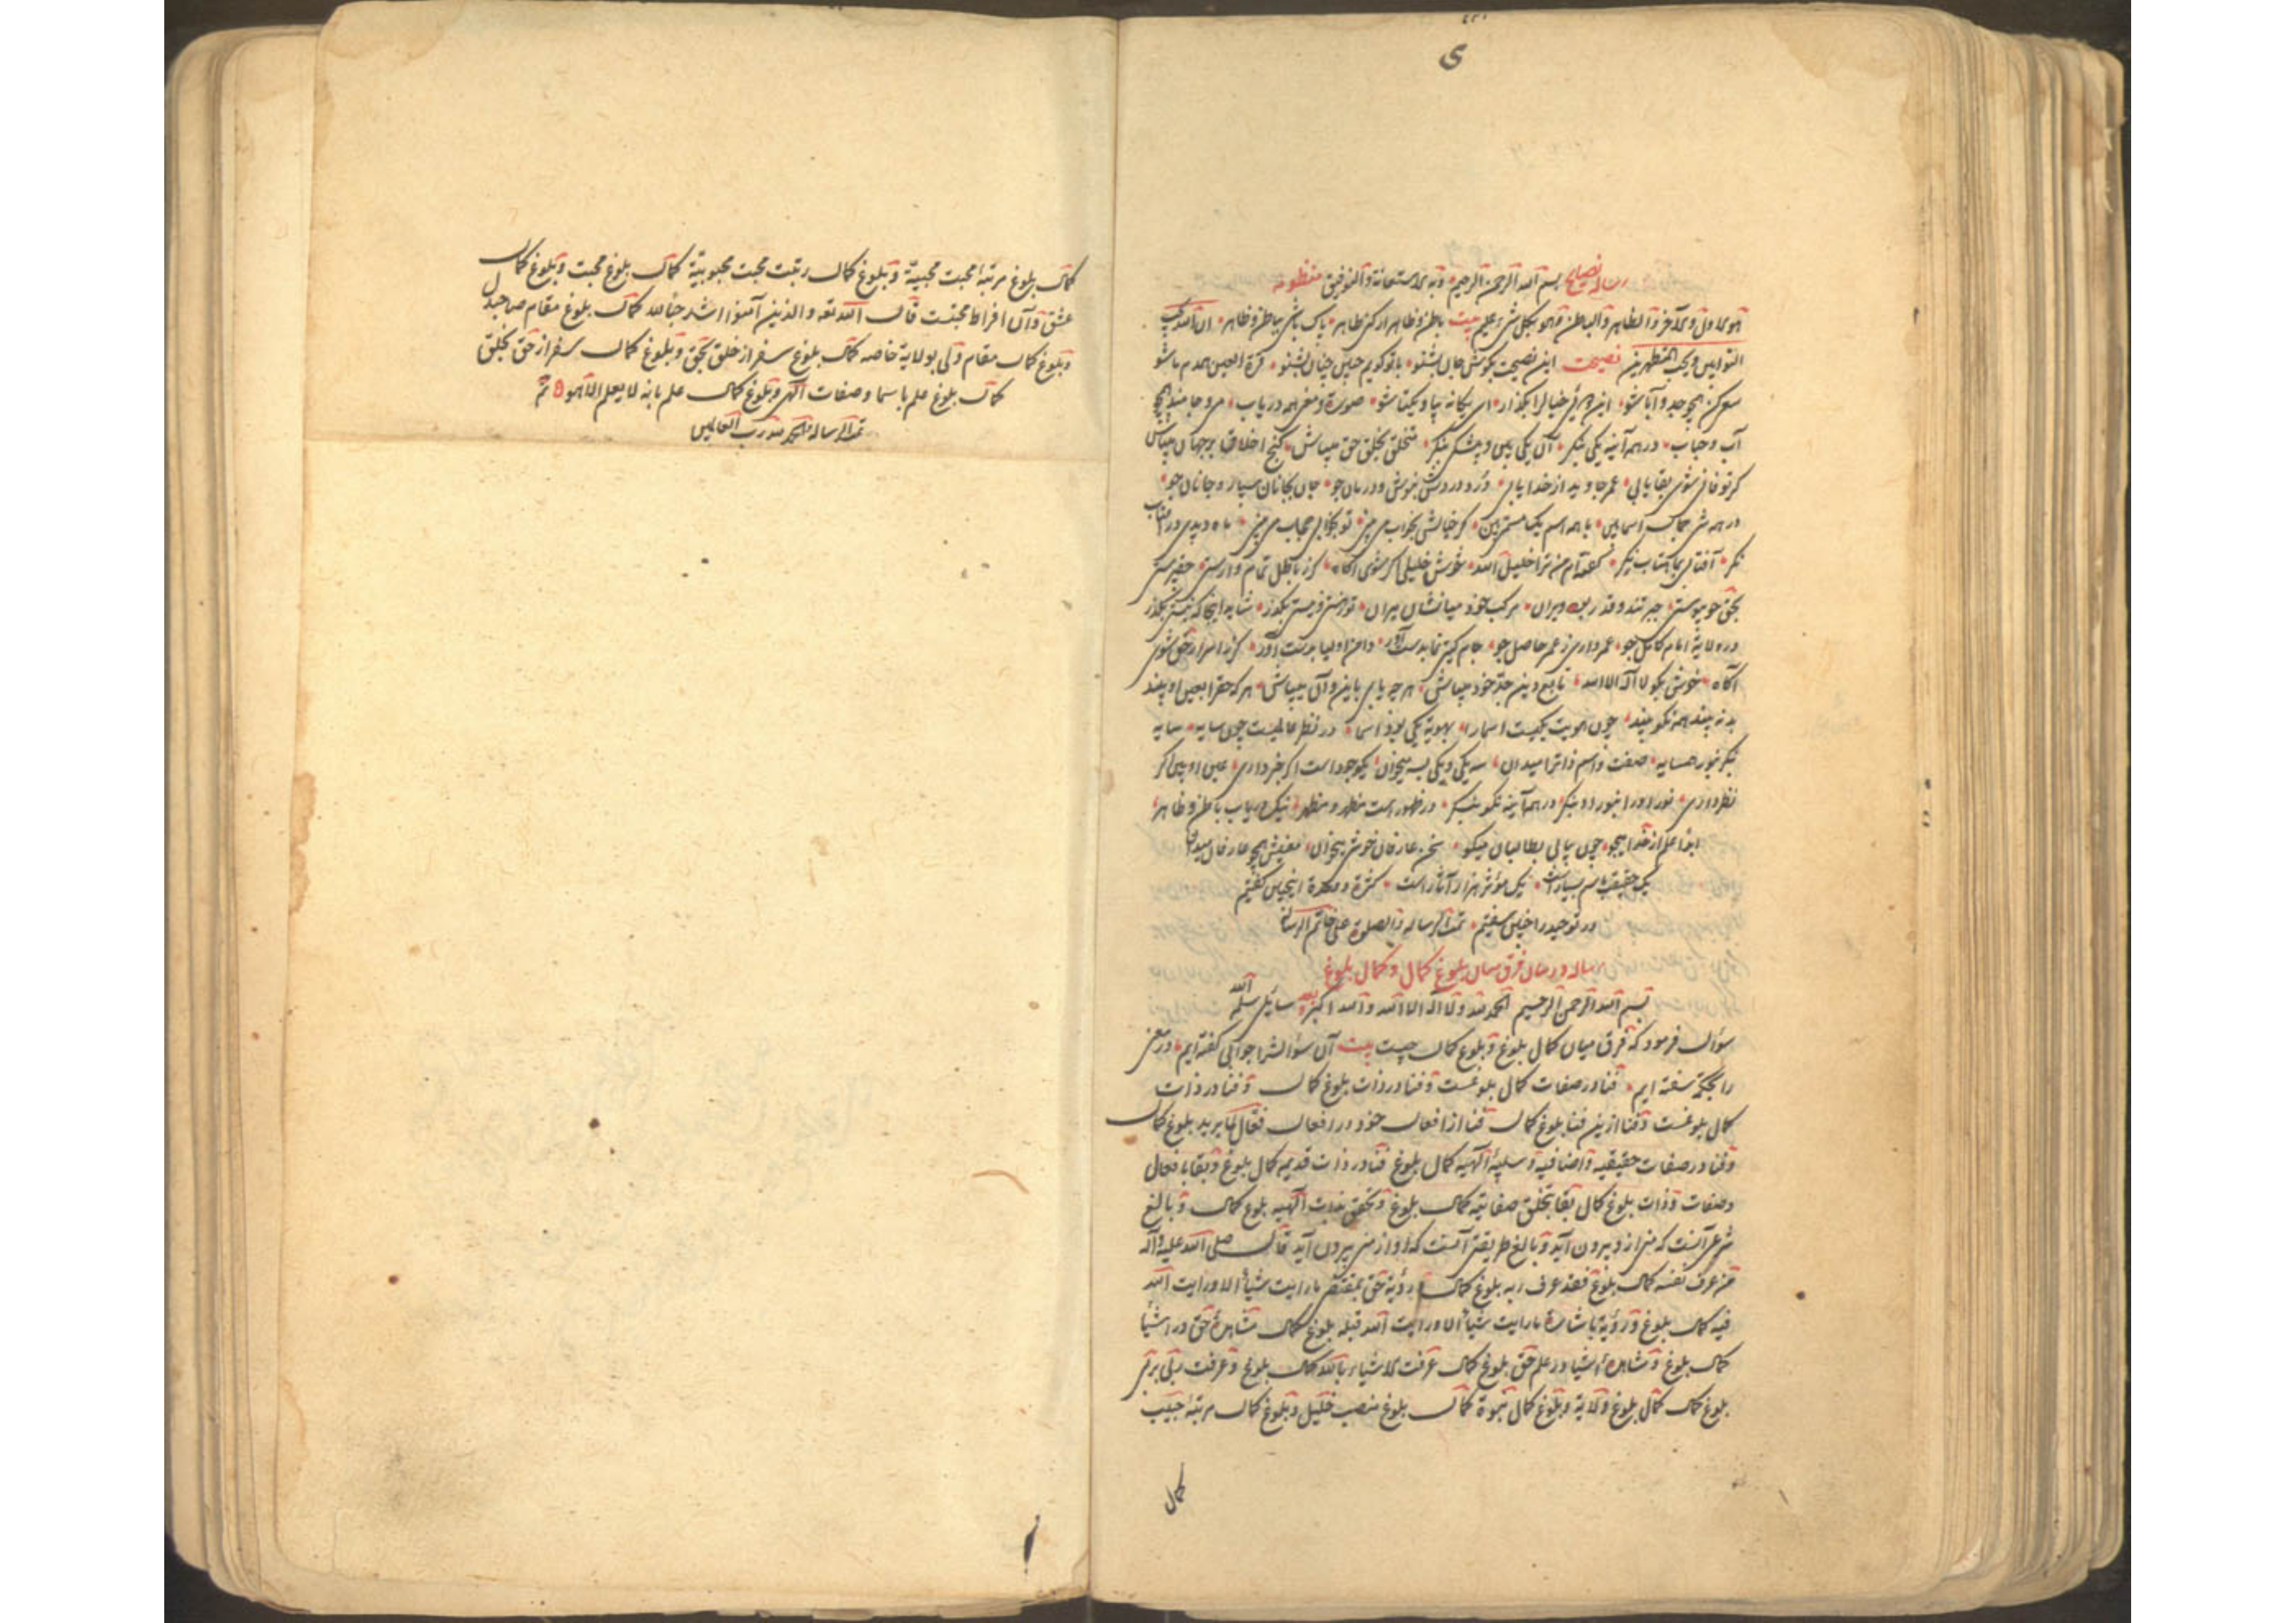 ی
رساله نصایح بسم الله الرحمن الرحیم وبه الاستعانة والتوفیق منظومه
هو الاول والآخر والظاهر والباطن وهو بکل شیء علیم بیت باطن و ظاهر ار کنی طاهر پاک باشی بباطن و ظاهر ان الله یحب
التوابین ویحب المتطهرین نصیحت این نصیحت بگوش جان بشنو با تو گویم چنین چنان بشنو قرة العین همدم ما شو
سوکن همچو جد و آبا شو این دوئی خیال را بگذار ای یگانه بیا و یکتا شو صورة و معنی همه دریاب موج ما مینداهمچو
آب و حباب در همه آینه یکی بنگر آن یکی بین و بیشکی بنگر متخلق بخلق حق میباش گنج اخلاق بر جهان میپاش
کر تو فانی شوی بقا یابی عمر جاوید از خدا یابی درد دردش بنوش و درمان جو جان بجانان سپار و جانان جو
در همه شی جمال اسما بین با همه اسم یک مسمی بین کر خیالش بخواب می بینی تو بخوابی حجاب می بینی ماه دیدی در آفتاب
نگر آفتابی بماهتاب نگر گفته ام من ترا خلیل الله خوش خلیلی کر شوی آگاه کر ز باطل تمام وارستی حقپرستی
بحق چو پیوستی جبر تند و قدر بود ویران مرکب خود میانشان میران تو ز هستی و نیستی بگذر شاید اینجا که نیستی بگذر
در ولایة امام کامل جو عمر داری ز عمر حاصل جو جام گیتی نما بدست آور دامن اولیا بدست آور کر ز اسرار حق شوی
آگاه خوش بگو لا اله الا الله تابع دین جد خود میباش هر چه یابی باین و آن میپاش هر که حق را بعین او بیند
بد نبیند همه نکو بیند چون هویت یکیست اسما را بهویة یکی بود اسما در نظر عالمیست چون سایه سایه
بنگر بنور همسایه صفت و اسم ذاترا میدان سه یکی و یکی بسه میخوان یکوجود است اگر خبر داری عین او بین اگر
نظر داری نور او را بنور او بنگر در همه آینه نکو بنگر در ظهور است مظهر و مظهر نیک دریاب باطن و ظاهر
ابدا علم از خدا میجو چون بیابی بطالبان میگو سخن عارفان خوش میخوان معنیش همچو عارفان میدان
یک حقیقت باسم بسیار است یک مؤثر هزار آثار است کثرة و وحدة اینچنین گفتیم
در توحید را چنین سفتیم تمت الرسالة والصلوة علی خاتم الرسالة
رساله در بیان فرق میان بلوغ کمال و کمال بلوغ
بسم الله الرحمن الرحیم الحمد لله ولا اله الا الله والله اکبر سائلی سلمه الله
سؤال فرمود که فرق میان کمال بلوغ و بلوغ کمال چیست بیت آن سؤالش را جوابی گفته ایم در معنی
را بحکمة سفته ایم فنا در صفات کمال بلوغست و فنا در ذات بلوغ کمال و فنا در ذات
کمال بلوغست و فنا ازین فنا بلوغ کمال فنا از افعال خود در افعال فعال لما یرید بلوغ کمال
و فنا در صفات حقیقیه و اضافیه و سلبیه الهیه کمال بلوغ فنا در ذات قدیمه کمال بلوغ و بقا بافعال
و صفات و ذات بلوغ کمال بقا بتخلق صفاتیه کمال بلوغ و تحقق بذات الهیه بلوغ کمال و بالغ
شرعی آنست که منی از و بیرون آید و بالغ طریقتی آنست که او از منی بیرون آید قال صلی الله علیه وآله
من عرف نفسه کمال بلوغ فقد عرف ربه بلوغ کمال رؤیة حق بمقتضی ما رایت شیأ الا ورایت الله
فیه کمال بلوغ و رؤیة باشارة ما رایت شیأ الا ورایت الله قبله بلوغ کمال مشاهدۀ حق در اشیا
کمال بلوغ و مشاهدۀ اشیا در علم حق بلوغ کمال عرفت الاشیاء بالله کمال بلوغ و عرفت ربی بربی
بلوغ کمال کمال بلوغ ولایة و بلوغ کمال نبوة کمال بلوغ منصب خلیل و بلوغ کمال مرتبۀ حبیب
کمال
کمال بلوغ مرتبۀ محبت محبیّة و بلوغ کمال رتبت محبت محبوبیّة کمال بلوغ محبت و بلوغ کمال
عشق و آن افراط محبتست قال الله تعه والذین آمنوا اشد حبا لله کمال بلوغ مقام صاحبدل
و بلوغ کمال مقام ولی بولایة خاصه کمال بلوغ سفر از خلق بحق و بلوغ کمال سفر از حق بخلق
کمال بلوغ علم باسما و صفات الهی و بلوغ کمال علم بانه لا یعلم الا هو تم
تمت الرسالة والحمد لله رب العالمین